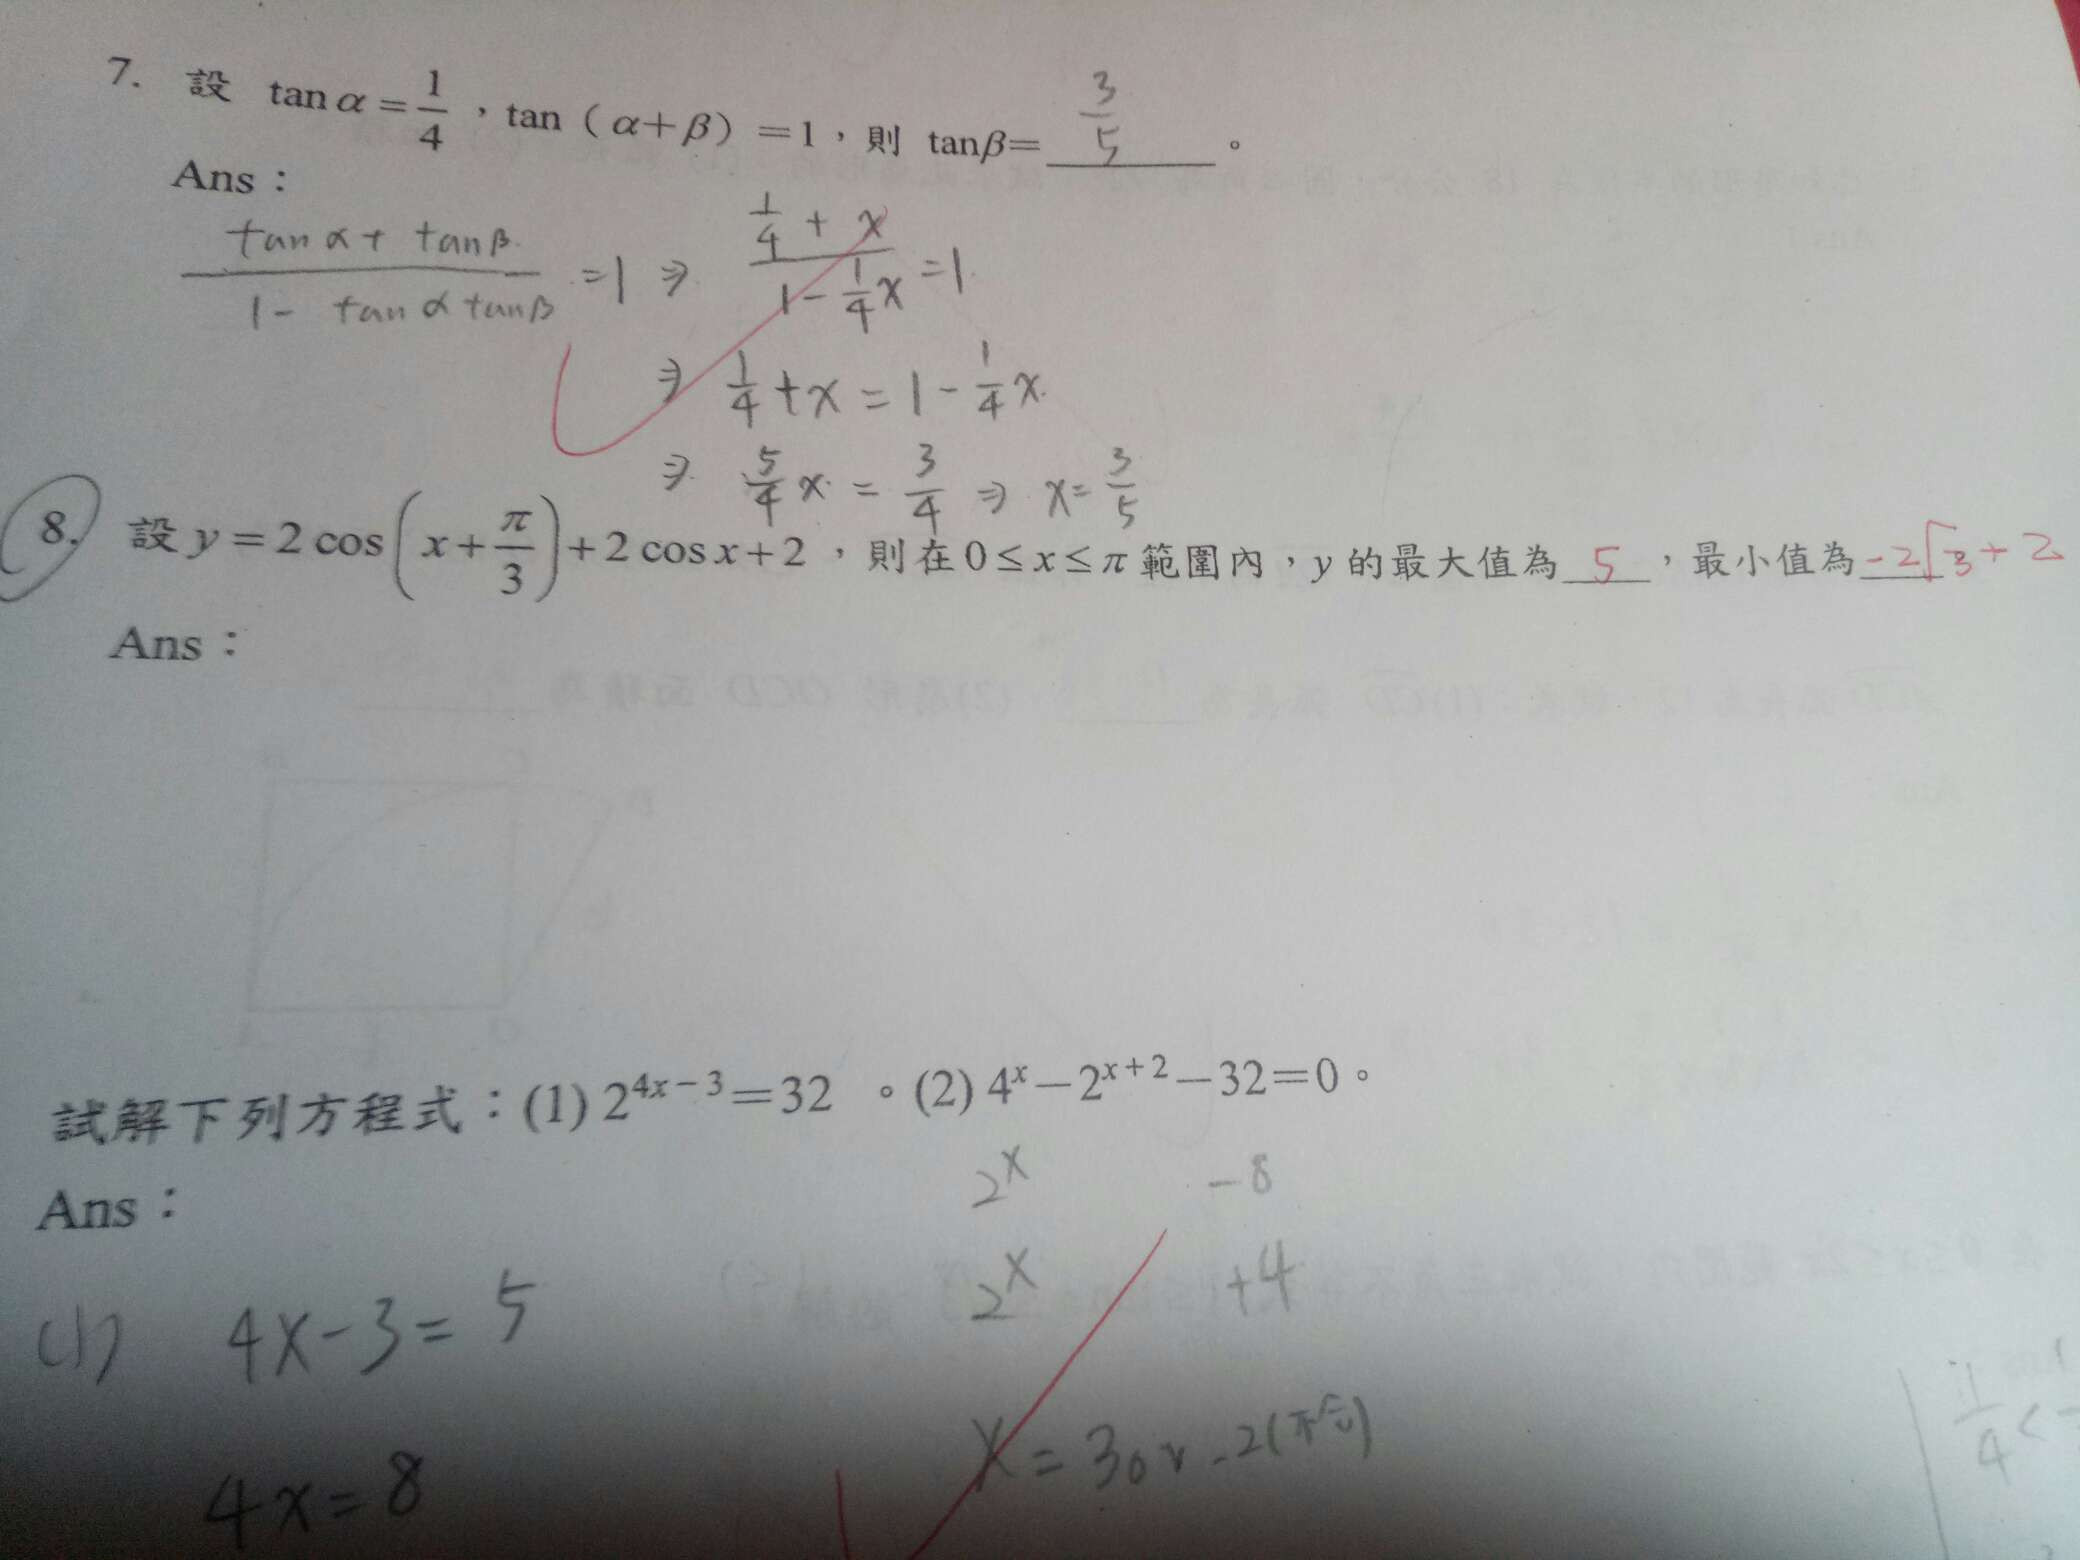 7. 設 tan α = 1/4 , tan ( α+β ) =1 , 則 tanβ= 3/5 。
Ans :
(tan α + tan β)/(1 - tan α tan β) = 1 ⇒ (1/4 + x)/(1 - 1/4 x) = 1
⇒ 1/4 + x = 1 - 1/4 x
⇒ 5/4 x = 3/4 ⇒ x = 3/5
8. 設 y = 2 cos(x + π/3) + 2 cos x + 2 , 則在 0 ≤ x ≤ π 範圍內 , y 的最大值為 5 , 最小值為 -2√3 + 2
Ans :
試解下列方程式 : (1) 2^(4x-3) = 32 。(2) 4^x - 2^(x+2) - 32 = 0 。
Ans :
2^x -8
2^x +4
(1) 4x - 3 = 5
x = 3 or -2 (不合)
4x = 8
1/4 <